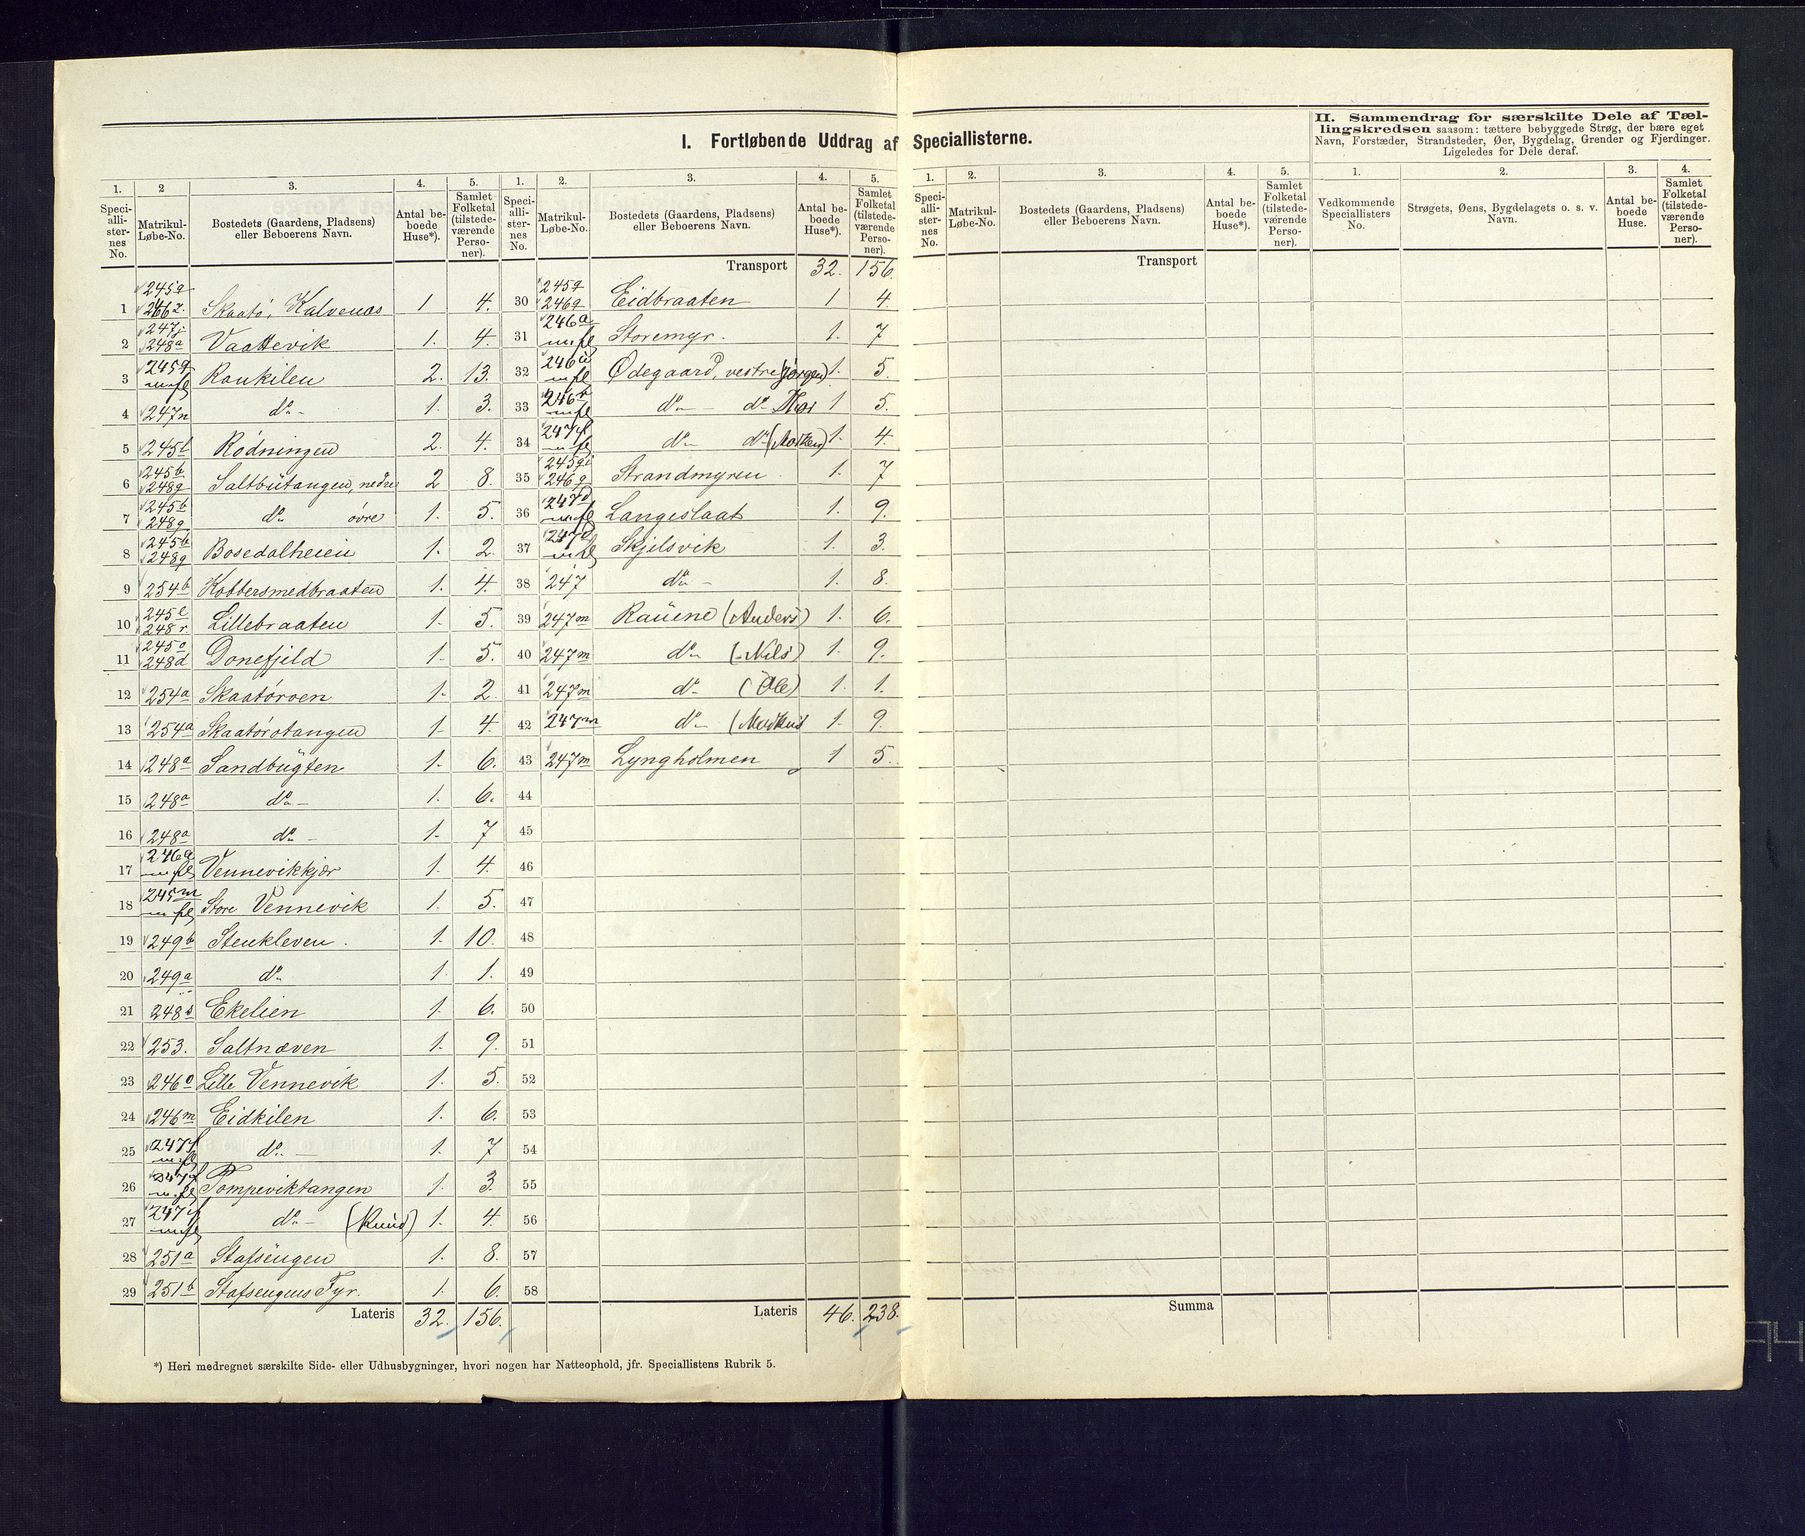 I. Fortløbende Uddrag af Speciallisterne.
II. Sammendrag for særskilte Dele af Tæl-
lingskredsen saasom: tættere bebyggede Strøg, der bære eget
Navn, Forstæder, Strandsteder, Øer, Bygdelag, Grender og Fjerdinger.
Ligeledes for Dele deraf.
1. 2 3. 4. 5.
Speci-alli-ster-nes No. Matrikul-Løbe-No. Bostedets (Gaardens, Pladsens) eller Beboerens Navn. Antal be-boede Huse*). Samlet Folketal (tilstede-værende Perso-ner).
1 245a 266z. Skaatø, Kalvenæs 1 4.
2 247j 248a Vaattevik 1. 4.
3 245g m.fl Raukilen 2. 13.
4 247n do - 1. 3.
5 245l Rødningen 2. 4.
6 245b 248g Saltbutangen, nedre 2 8.
7 245b 248g do øvre 1. 5.
8 245b 248g Bosedalheien 1. 2.
9 254b Kobbersmedbraaten 1. 4.
10 245e 248r. Lillebraaten 1. 5.
11 245o 248d Donefjeld 1. 5.
12 254a Skaatøroen 1. 2.
13 254a Skaatørotangen 1. 4.
14 248a Sandbugten 1. 6.
15 248a do - 1. 6.
16 248a do - 1. 7
17 246a m.fl Vennevikkjær 1. 4.
18 245m m.fl Store Vennevik 1. 5.
19 249b Stenkleven. 1. 10.
20 249a do 1. 1.
21 248s Ekelien 1. 6.
22 253. Saltnæven 1. 9.
23 246o Lille Vennevik 1. 5.
24 246m Eidkilen 1. 6.
25 247f m.fl do - 1. 7
26 247f m.fl Tompeviktangen 1. 3.
27 247f m.fl do - (Knud) 1. 4.
28 251a Stafsengen 1. 8.
29 251b Stafsengens Fyr. 1. 6.
Lateris 32. 156.
1. 2. 3. 4. 5.
Speci-alli-ster-nes No. Matrikul-Løbe-No. Bostedets (Gaardens, Pladsens) eller Beboerens Navn. Antal be-boede Huse*). Samlet Folketal (tilstede-værende Perso-ner).
Transport 32. 156.
30 245g 246g Eidbraaten 1 4.
31 246a m.fl Storemyr. 1. 7
32 246u m.fl Ødegaard, vestre (Jørgen) 1. 5.
33 246r m.fl do - do 1 5.
34 247f m.fl do do 1. 4
35 245gi 246g Strandmyren. 1. 7
36 247d m.fl Langeslaat 1. 9.
37 247d m.fl Skjelsvik 1. 3.
38 247 do - 1. 8.
39 247m Rauene (Anders) 1. 6.
40 247m do (Nils) 1. 9.
41 247m do (Ole) 1. 1.
42 247m do (Markus 1. 9.
43 247m Lyngholmen 1 5.
44
45
46
47
48
49
50
51
52
53
54
55
56
57
58
Lateris 46. 238.
*) Heri medregnet særskilte Side- eller Udhusbygninger, hvori nogen har Natteophold, jfr. Speciallistens Rubrik 5.
1. 2. 3. 4. 5.
Speci-alli-ster-nes No. Matrikul-Løbe-No. Bostedets (Gaardens, Pladsens) eller Beboerens Navn. Antal be-boede Huse*). Samlet Folketal (tilstede-værende Perso-ner).
Transport
Summa
1. 2. 3. 4.
Vedkommende Speciallisters No. Strøgets, Øens, Bygdelagets o. s. v. Navn. Antal be-boede Huse. Samlet Folketal (tilstede-værende Perso-ner).